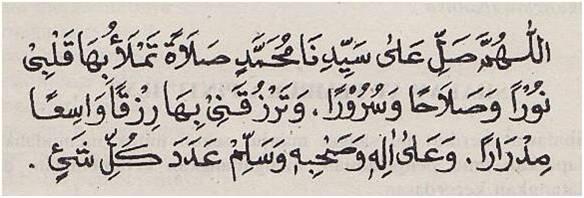 اَللّٰهُمَّ صَلِّ عَلٰى سَيِّدِنَا مُحَمَّدٍ صَلَاةً تَمْلَأُ بِهَا قَلْبِيْ
نُوْرًا وَصَلَاحًا وَسُرُوْرًا. وَتَرْزُقَنِيْ بِهَا رِزْقًا وَاسِعًا
مِدْرَارًا. وَعَلٰى اٰلِهٖ وَصَحْبِهٖ وَسَلِّمْ عَدَدَ كُلِّ شَيْئٍ.